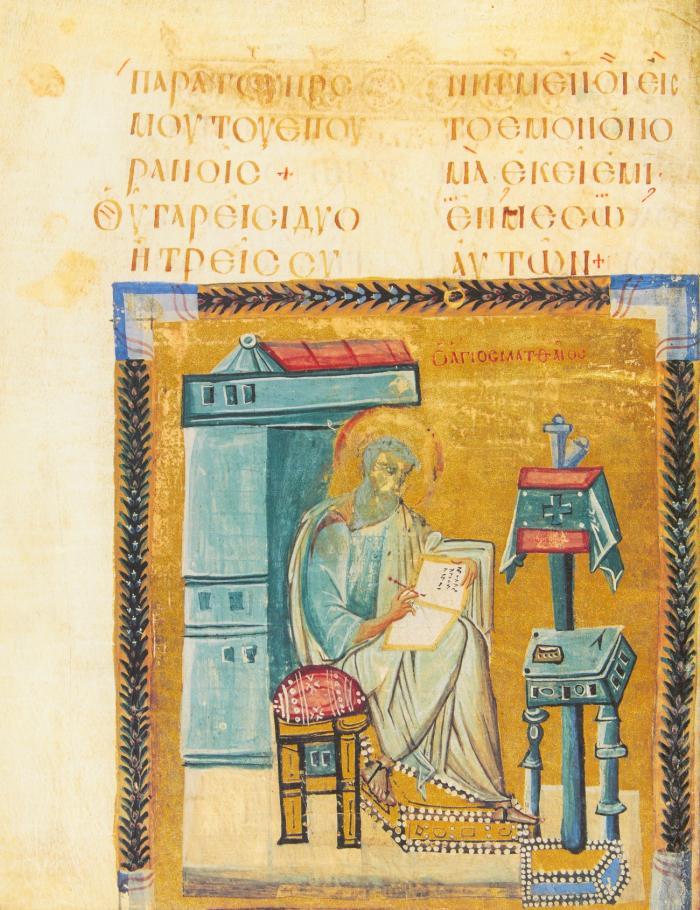 ΠΑΡΑ ΤΟΥ ΠΡС
ΜΟΥ ΤΟΥ ΕΝ ΟΥ
ΡΑΝΟΙС +
ΟΥ ΓΑΡ ΕΙСΙ ΔΥΟ
Η ΤΡΕΙС СΥ
ΝΗΓΜΕΝΟΙ ΕΙС
ΤΟ ΕΜΟΝ ΟΝΟ
ΜΑ ΕΚΕΙ ΕΜΙ·
ΕΝ ΜΕСΩ
ΑΥΤΩΝ+
Ο ΑΓΙΟС ΜΑΤΘΑΙΟС